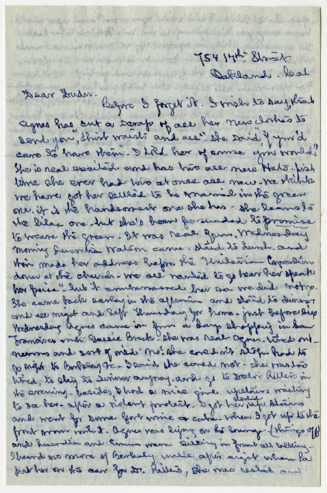 754 14th Street
Oakland. Cal
Dear
Before I forget it. I wish to say, that
Agnes has cut a scrap of all her new clothes to
send you, "shirt waists and all" she said if you'd
care to have them". I told her of course you would!
She is real excited and has two all new Hats. first
time she ever had two at once all new. We think
we have got her willed to be married in the green
one, it is the handsomest one she has. She leans to
the lilac one but she's been persuaded to promise
to wear the green. It was real fun, Wednesday
morning Lucretia Watson came. Staid to lunch. and
then made her address before the Unitarian Convention
down at the church. We all wanted to go hear her speak
her "piece". but it embarrassed her so we did not go.
She came back early in the afternoon and staid to dinner
and all night and left Thursday for home. just before dinner
Wednesday Agnes came in from a days shopping in San
Francisco with She was real tired out.
nervous and sort of mad. No! she couldn't stop, had to
go right to Berkeley &c. I said she could not. She was too
tired, to stay to dinner anyway. and go to
in the evening. besides I had a nice give upstairs waiting
to see her. after a violent protest. I got her up stairs
and went for some hot wine and when I got up to the
front room with it. Agnes was lying on the lounge.
and Lucretia and were sitting in front all talking.
I heard no more of Berkeley until after eight when I
put her on the car for She was rested and